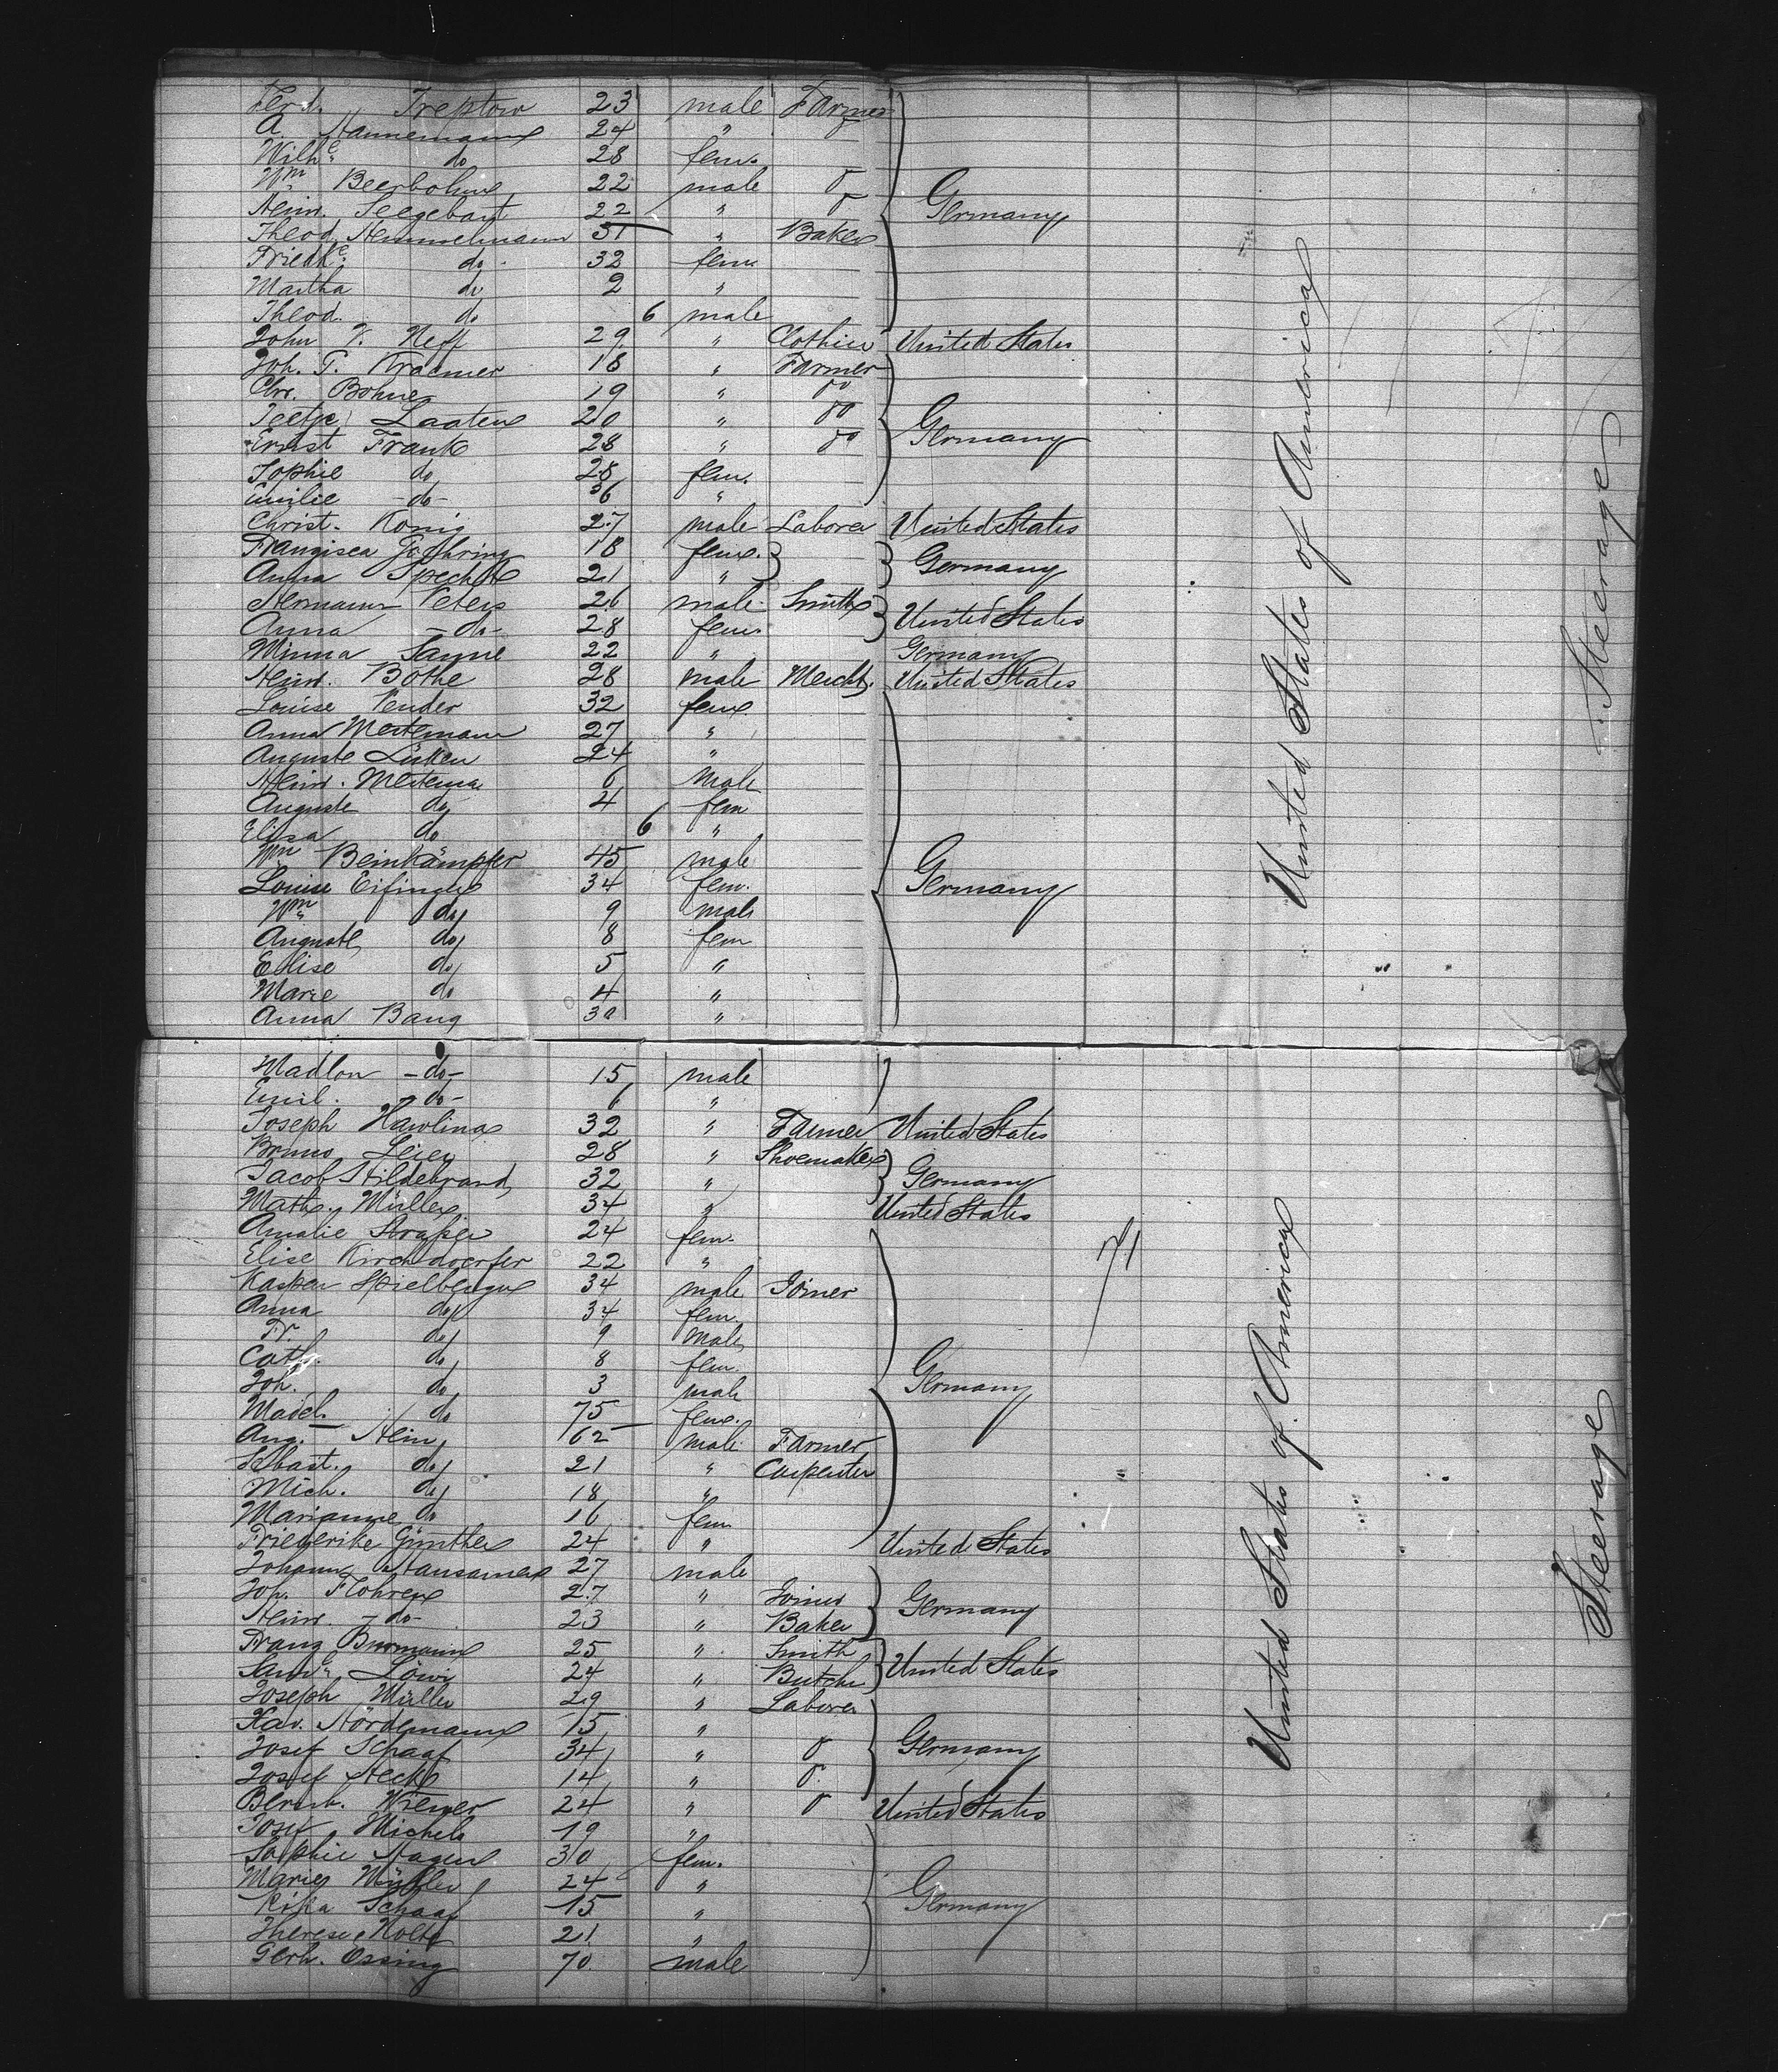 Ferd. Treptow 23 male Farmer
A. Hannemann 24 " "
Wilh.e do 28 fem.
Wm Beerbohm 22 male "
Heinr. Seegebart 22 " "
Theod. Hemmelmann 31 " Baker
Friedke. do 32 fem
Martha do 2 "
Theod. do 6 male
Germany
John F. Neff 29 " Clothier United States
Joh. G. Kraemer 18 " Farmer
Chr. Bohner 19 " do
Teetje Laaten 20 " do
Ernst Frank 28 " do
Sophie do 28 fem.
Emilie -do- "
Germany
Christ. König 27 male Laborer United States
Franzisca Goehring 18 fem.
Anna Specht 21 "
Germany
Hermann Peters 26 male Smith
Anna -do- 28 fem
United States
Minna 22 " Germany
Heinr. Bothe 28 male Mercht. United States
Louise Vender 32 fem
Anna Mestemann 27 "
Auguste Lütken 24 "
Heinr. Mestema 6 Male
Auguste do 4 fem
Elisa do 6 "
Wm Beinkämpfer 45 male
Louise Eifinger 34 fem.
Wm do 9 male
Auguste do 8 fem
Elise do 5 "
Marie do 4 "
Anna Bang 30 "
Germany
Madlon -do- 15 male
Emil. -do- 6 "
Joseph Hawlina 32 " Farmer United States
Bruno 28 " Shoemaker
Jacob Hildebrand 32 "
Germany
Math. Müller 34 " United States
Amalie Straßer 24 fem.
Elise Kirchdoerfer 22 "
Kasper Spielberger 34 male Joiner
Anna do 34 fem.
Fr. do 9 Male
Cath. do 8 fem.
Joh. do 3 male
Madel. do 75 fem.
Aug. Hein 62 male Farmer
Sebast. do 21 " Carpenter
Mich. do 18 "
Marianne do 16 fem
Germany
Friederike Günther 24 " United States
Johann Hansamer 27 male
Joh. Flohren 27 " Joiner
Heinr. -do- 23 " Baker
Germany
Franz Burmann 25 " Smith
Saml. Löwi 24 " Butcher
United States
Joseph Müller 29 " Laborer
Xav. Nördemann 15 "
Josef Schaaf 34 " "
Josef Heck 14 " "
Germany
Bernh. Wiemer 24 " " United States
Josef Michels 19 "
Sophie Hagen 30 fem.
Maries Müller 24 "
Rika Schaaf 15 "
Therese Nolte 21 "
Gerh. Ossing 70 male
Germany
United States of America
Steerage
71
United States of America
Steerage